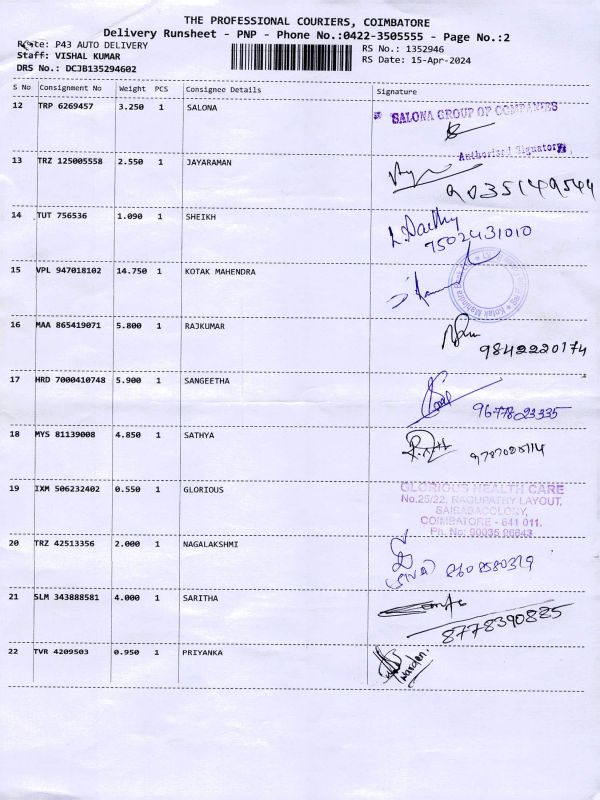 THE PROFESSIONAL COURIERS, COIMBATORE
Delivery Runsheet - PNP - Phone No.:0422-3505555 - Page No.:2
Route: P43 AUTO DELIVERY
Staff: VISHAL KUMAR
DRS No.: DCJB135294602
RS No.: 1352946
RS Date: 15-Apr-2024
S No Consignment No Weight PCS Consignee Details Signature
12 TRP 6269457 3.250 1 SALONA
SALONA GROUP OF COMPANIES
Authorised Signatory
13 TRZ 125005558 2.550 1 JAYARAMAN
9035149544
14 TUT 756536 1.090 1 SHEIKH
7502431010
15 VPL 947018102 14.750 1 KOTAK MAHENDRA
Kotak Mahindra
16 MAA 865419071 5.800 1 RAJKUMAR
9842220174
17 HRD 7000410748 5.900 1 SANGEETHA
9677823335
18 MYS 81139008 4.850 1 SATHYA
19 IXM 506232402 0.550 1 GLORIOUS
GLORIOUS HEALTH CARE
No.25/22, RAGUPATHY LAYOUT,
SAIBABACOLONY,
COIMBATORE - 641 011.
Ph. No: 90035
20 TRZ 42513356 2.000 1 NAGALAKSHMI
(SIVA)
21 SLM 343888581 4.000 1 SARITHA
8778390885
22 TVR 4209503 0.950 1 PRIYANKA
Warden.